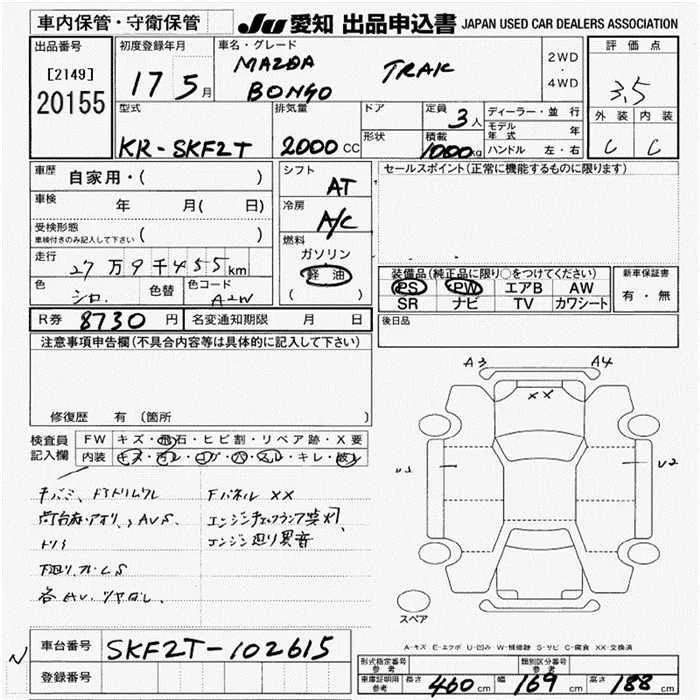 車内保管・守衛保管
JU 愛知 出品申込書 JAPAN USED CAR DEALERS ASSOCIATION
出品番号
[2149]
20155
初度登録年月
17 5月
車名・グレード
MAZDA
BONGO
TRAK
2WD
・
4WD
評価点
3.5
外装 内装
C C
型式
KR-SKF2T
排気量
2000 CC
ドア
形状
定員
3人
積載
1000kg
ディーラー・並行
モデル年式 年
ハンドル 左・右
車歴
自家用・( )
車検
年 月( 日)
受検形態
車検付きのみ記入して下さい ( )
走行
27万9千455km
色
シロ
色替
色コード
A2W
シフト
AT
冷房
A/C
燃料
ガソリン
軽油
( )
セールスポイント(正常に機能するものに限ります)
装備品(純正品に限り○をつけてください)
PS PW エアB AW
SR ナビ TV カワシート
新車保証書
有・無
後日品
R券 8730円
名変通知期限 月 日
注意事項申告欄(不具合内容等は具体的に記入して下さい)
修復歴 有 (箇所 )
検査員
記入欄
FW キズ・飛石・ヒビ割・リペア跡・X要
内装 キズ・汚レ・コゲ・穴・スレ・キレ・破レ
Fパネル XX
エンジンチェックランプ点灯
エンジン廻り異音
A3 A4
XX
U1 U2
スペア
A-キズ E-エクボ U-凹み W-補修跡 S-サビ C-腐食 XX-交換済
N
車台番号 SKF2T-102615
登録番号
形式指定番号
参考
類別区分番号
参考
車庫証明用
参考
長さ 460cm 幅 169cm 高さ 188cm